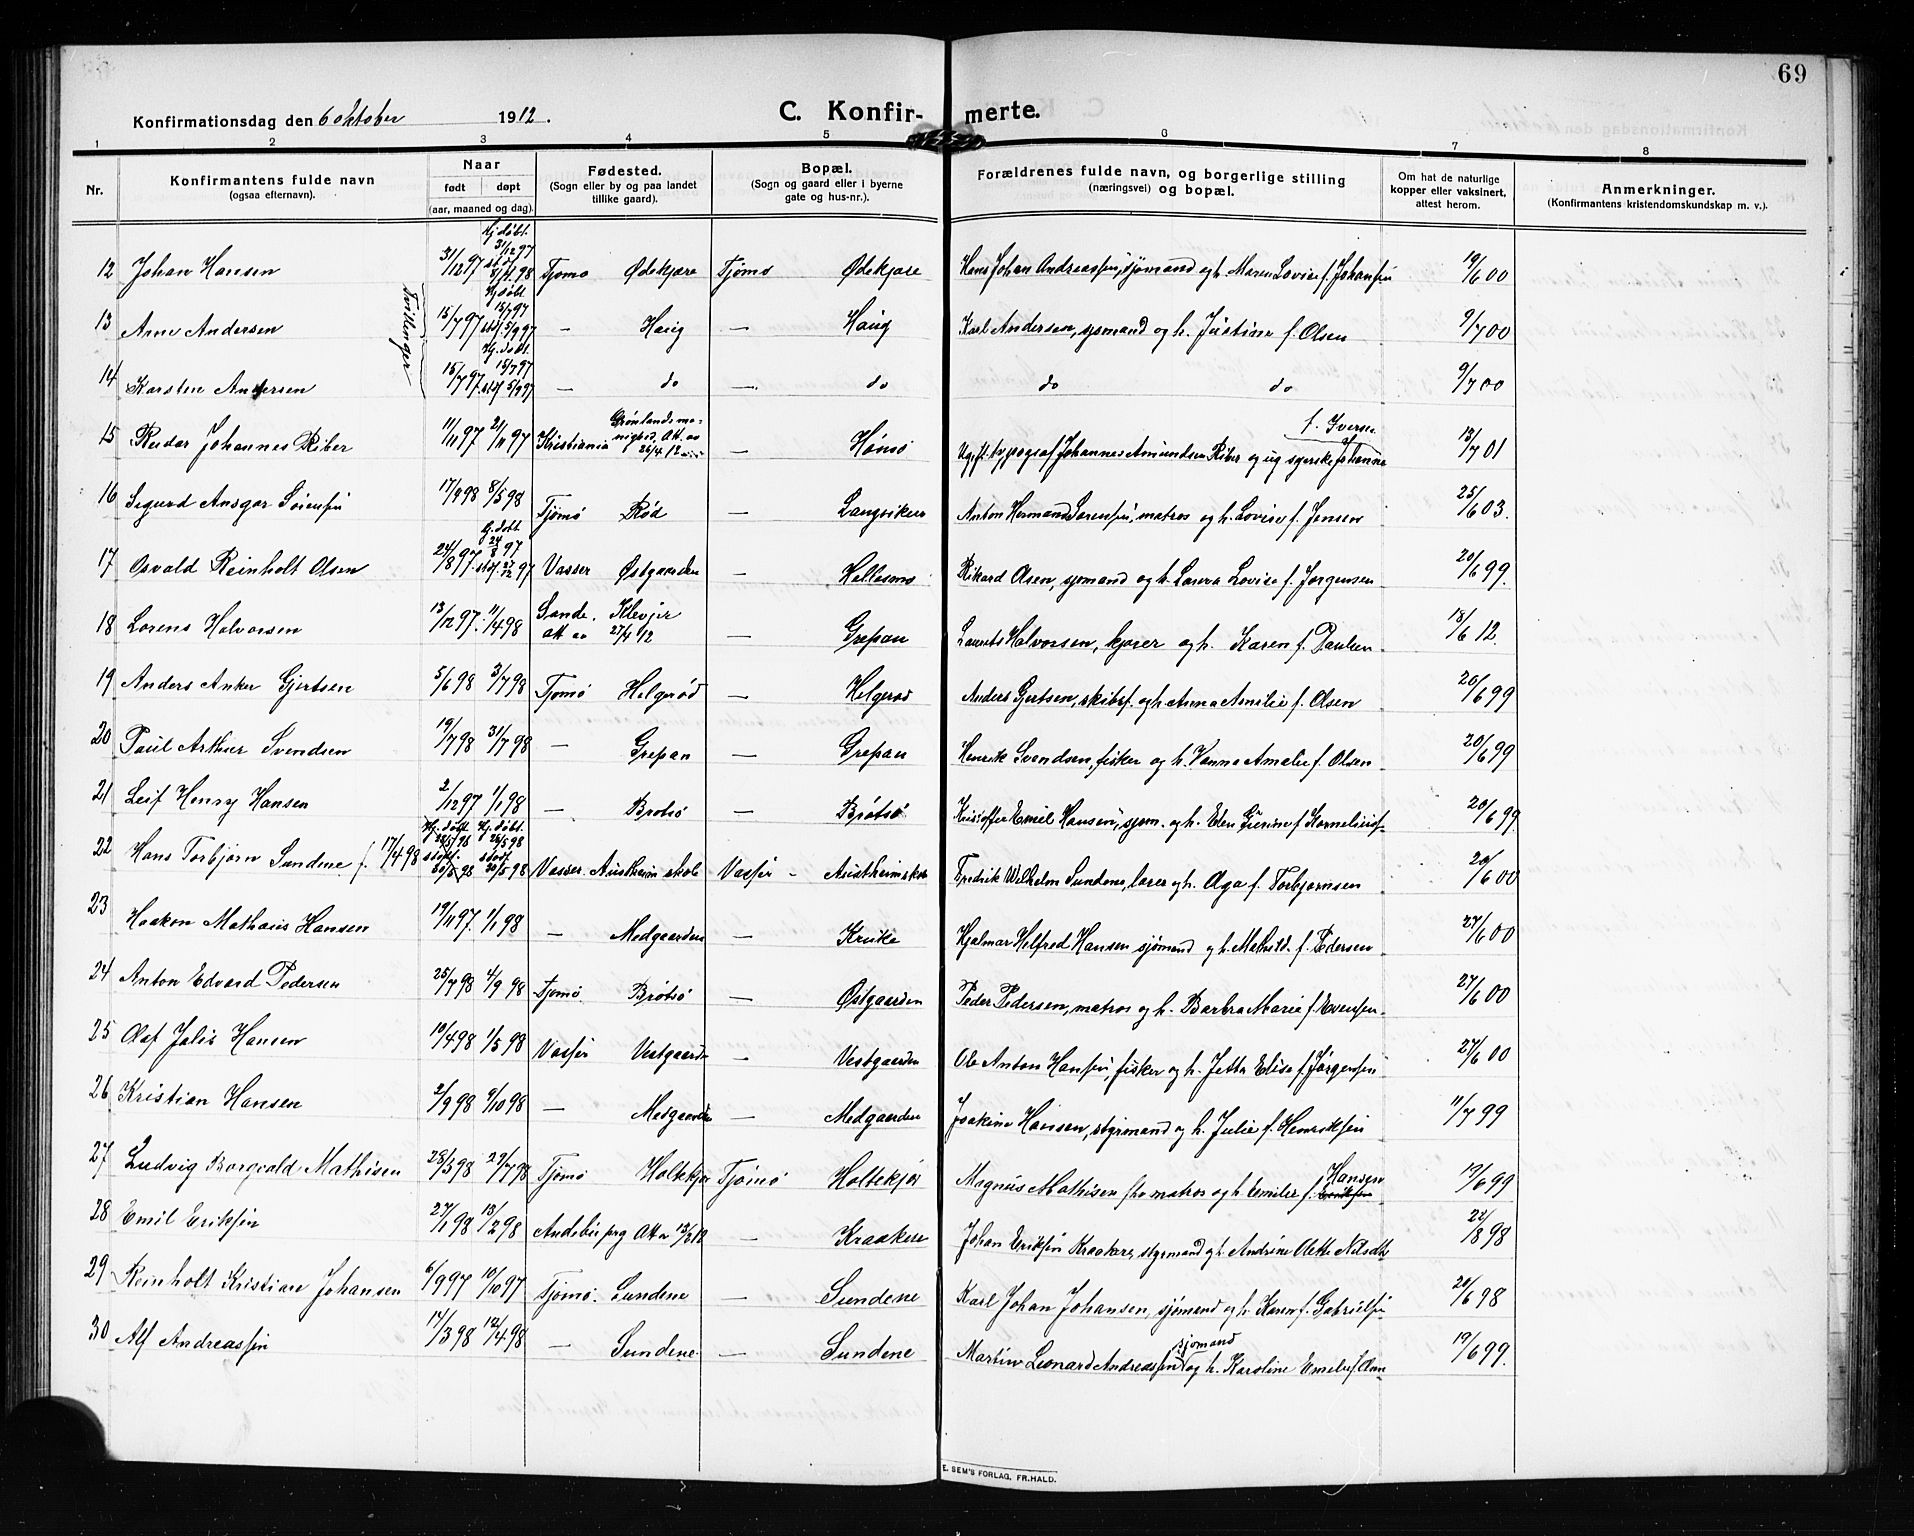 69
Konfirmationsdag den 6 Oktober 1912.
C. Konfir- merte.
1 2 3 4 5 6 7 8
Nr.
Konfirmantens fulde navn
(ogsaa efternavn).
Naar
født døpt
(aar, maaned og dag).
Fødested.
(Sogn eller by og paa landet
tillike gaard).
Bopæl.
(Sogn og gaard eller i byerne
gate og hus-nr.).
Forældrenes fulde navn, og borgerlige stilling
(næringsvei) og bopæl.
Om hat de naturlige
kopper eller vaksinert,
attest herom.
Anmerkninger.
(Konfirmantens kristendomskundskap m. v.).
12 Johan Hansen 31/12 97 Hj. døbt 31/12 97 stdf. 8/4 98 Tjømø Ødekjære Tjømø Ødekjære Hans Johan Andreassen, sjømand og h. Maren Lovise f. Johansen 19/6 00
Tvillinger
13 Arne Andersen 15/7 97 Hj. døbt 15/7 97 stdf. 5/9 97 — Haug — Haug Karl Andersen, sjømand og h. Justine f. Olsen 9/7 00
14 Karsten Andersen 15/7 97 Hj. døbt 15/7 97 stdf. 5/9 97 — do — do do do 9/7 00
15 Reidar Johannes Riber 11/11 97 21/11 97 Kristiania Grønlands menighed. Att. av 26/4 12 — Hønsø Ugift typograf Johannes Amundsen Riber og ug. syerske Johanne f. Iversen 13/7 01
16 Sigurd Ansgar Sørensen 17/2 98 8/5 98 Tjømø Rød — Langviken Anton Hermand Sørensen, matros og h. Lovise f. Jensen 25/6 03.
17 Osvald Reinholt Olsen 24/8 97 Hj. døbt 24/8 97 stdf. 27/12 97 Vasser Østgaarden — Hellesmo Rikard Olsen, sjømand og h. Laura Lovise f. Jørgensen 20/6 99.
18 Lorens Halvorsen 13/12 97. 11/4 98 Sande. Klevjer att av 27/4 12 — Grepan Laurits Halvorsen, kjører og h. Karen f. Paulsen 18/6 12.
19 Anders Anker Gjertsen 5/6 98 3/7 98 Tjømø Helgerød — Helgerød Anders Gjertsen, skibsf. og h. Anna Amilie f. Olsen 20/6 99
20 Paul Arthur Svendsen 19/7 98 31/7 98 — Grepan — Grepan Henrik Svendsen, fisker og h. Vanna Amalie f. Olsen 20/6 99
21 Leif Henry Hansen 2/12 97 1/1 98 — Brøtsø — Brøtsø Kristoffer Emil Hansen, sjøm. og h. Elen Gurine f. Kornelius- 20/6 99.
22 Hans Torbjørn Sundene f. 17/4 98 Hj. døbt stdf. 30/5 98 Hj. døbt stdf. 30/5 98 Vasser Austheim skole Vasser - Austheimskole Fredrik Wilhelm Sundene, lærer og h. Aga f. Torbjørnsen 20/6 00
23 Haakon Mathæus Hansen 19/11 97. 1/1 98 — Medgaarden — Kruke Hjalmar Helfred Hansen sjømand og h. Mathild. f. Pedersen 27/6 00
24 Anton Edvard Pedersen 25/7 98 4/9 98 Tjømø Brøtsø — Østgaarden Peder Pedersen, matros og h. Barbra Marie f. Evensen 27/6 00
25 Olaf Julis Hansen 10/4 98 1/5 98 Vasser Vestgaarden — Vestgaarden Ole Anton Hansen, fisker og h. Jetta Elise f. Jørgensen 27/6 00
26 Kristian Hansen 2/9 98 9/10 98 — Medgaarden — Medgaarden Joakim Hansen, styrmand og h. Julie f. Henriksen 11/7 99
27 Ludvig Borgvald Mathisen 28/3 98 29/7 98 Tjømø Holtekjær Tjømø Holtekjær Magnus Mathisen matros og h. Emilie f. Eriksen Hansen 19/6 99
28 Emil Eriksen 27/1 98 13/2 98 Andebu prg Att av 13/2 12 — Kraakere Johan Eriksen Kraakere, styrmand og h. Andrine Olette Nilsdtr 22/8 98
29 Reinholt Kristian Johansen 6/9 97 10/10 97 Tjømø. Sundene — Sundene Karl Johan Johansen, sjømand og h. Karen f. Gabrielsen 20/6 98
30 Alf Andreassen 14/3 98 12/4 98 — Sundene — Sundene Martin Leonard Andreassen sjømand og h. Karoline Emelie f. Olsen 19/6 99.
E. SEM'S FORLAG, FR.HALD.